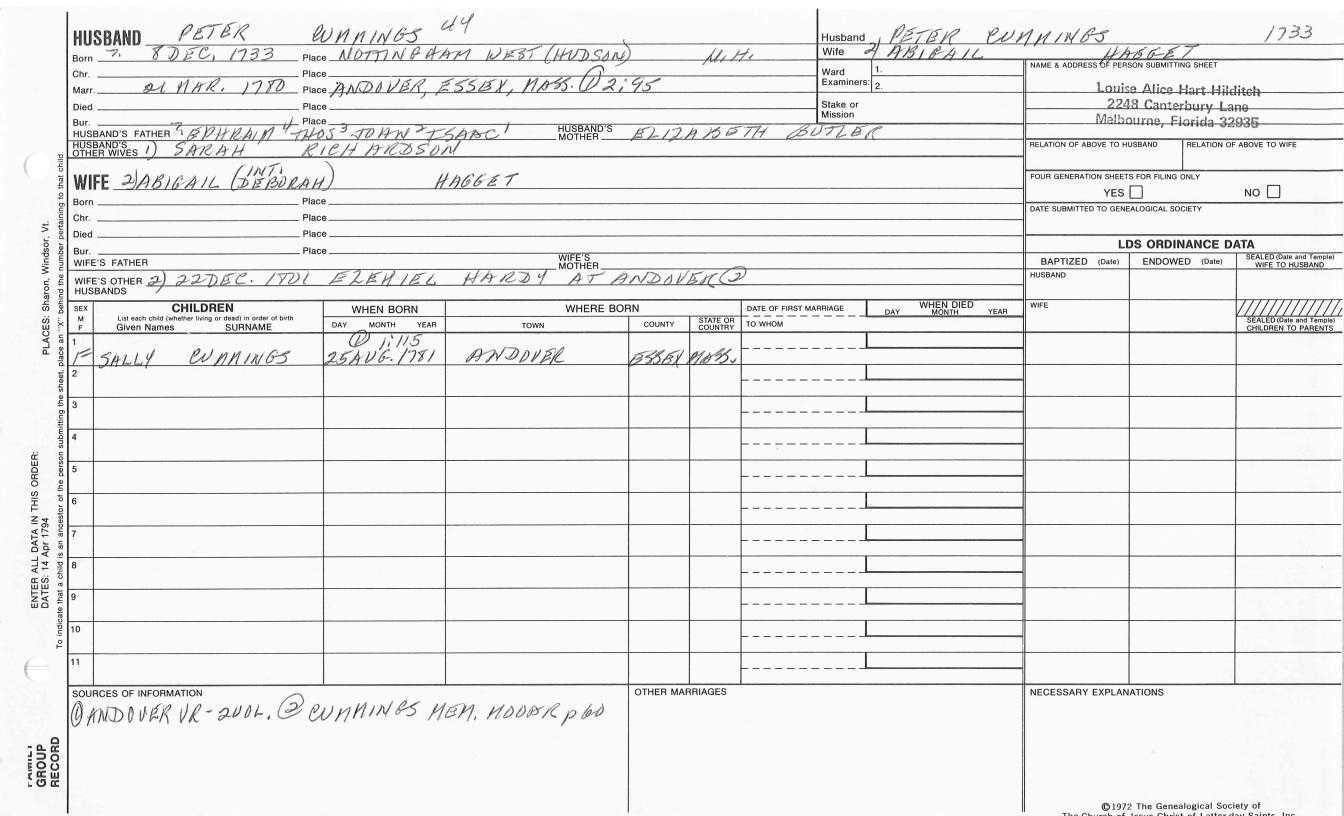 HUSBAND PETER CUMMINGS 44
Born ?. 8 DEC. 1733 Place NOTTINGHAM WEST (HUDSON) N.H.
Chr. Place
Marr. 21 MAR. 1780 Place ANDOVER, ESSEX, MASS. ① 2:95
Died Place
Bur. Place
HUSBAND'S FATHER ?. EPHRAIM 4 THOS 3 JOHN 2 ISAAC 1 HUSBAND'S MOTHER ELIZABETH BUTLER
HUSBAND'S OTHER WIVES 1) SARAH RICHARDSON
Husband PETER CUMMINGS 1733
Wife 2) ABIGAIL HAGGET
Ward Examiners: 1.
2.
Stake or Mission
NAME & ADDRESS OF PERSON SUBMITTING SHEET
Louise Alice Hart Hilditch
2248 Canterbury Lane
Melbourne, Florida 32935
RELATION OF ABOVE TO HUSBAND RELATION OF ABOVE TO WIFE
FOUR GENERATION SHEETS FOR FILING ONLY
YES NO
DATE SUBMITTED TO GENEALOGICAL SOCIETY
WIFE 2) ABIGAIL (INT. DEBORAH) HAGGET
Born Place
Chr. Place
Died Place
Bur. Place
WIFE'S FATHER WIFE'S MOTHER
WIFE'S OTHER HUSBANDS 2) 22 DEC. 1801 EZEKIEL HARDY AT ANDOVER ②
LDS ORDINANCE DATA
BAPTIZED (Date) ENDOWED (Date) SEALED (Date and Temple) WIFE TO HUSBAND
HUSBAND
WIFE
SEALED (Date and Temple) CHILDREN TO PARENTS
SEX M F
CHILDREN
List each child (whether living or dead) in order of birth
Given Names SURNAME
WHEN BORN
DAY MONTH YEAR
WHERE BORN
TOWN COUNTY STATE OR COUNTRY
DATE OF FIRST MARRIAGE
TO WHOM
WHEN DIED
DAY MONTH YEAR
① 1:115
1 F SALLY CUMMINGS 25 AUG. 1781 ANDOVER ESSEX MASS.
2
3
4
5
6
7
8
9
10
11
SOURCES OF INFORMATION
① ANDOVER VR - 2VOL. ② CUMMINGS MEM. MOOAR p 60
OTHER MARRIAGES
NECESSARY EXPLANATIONS
PLACES: Sharon, Windsor, Vt.
To indicate that a child is an ancestor of the person submitting the sheet, place an "X" behind the number pertaining to that child
ENTER ALL DATA IN THIS ORDER:
DATES: 14 Apr 1794
FAMILY GROUP RECORD
©1972 The Genealogical Society of
The Church of Jesus Christ of Latter-day Saints, Inc.